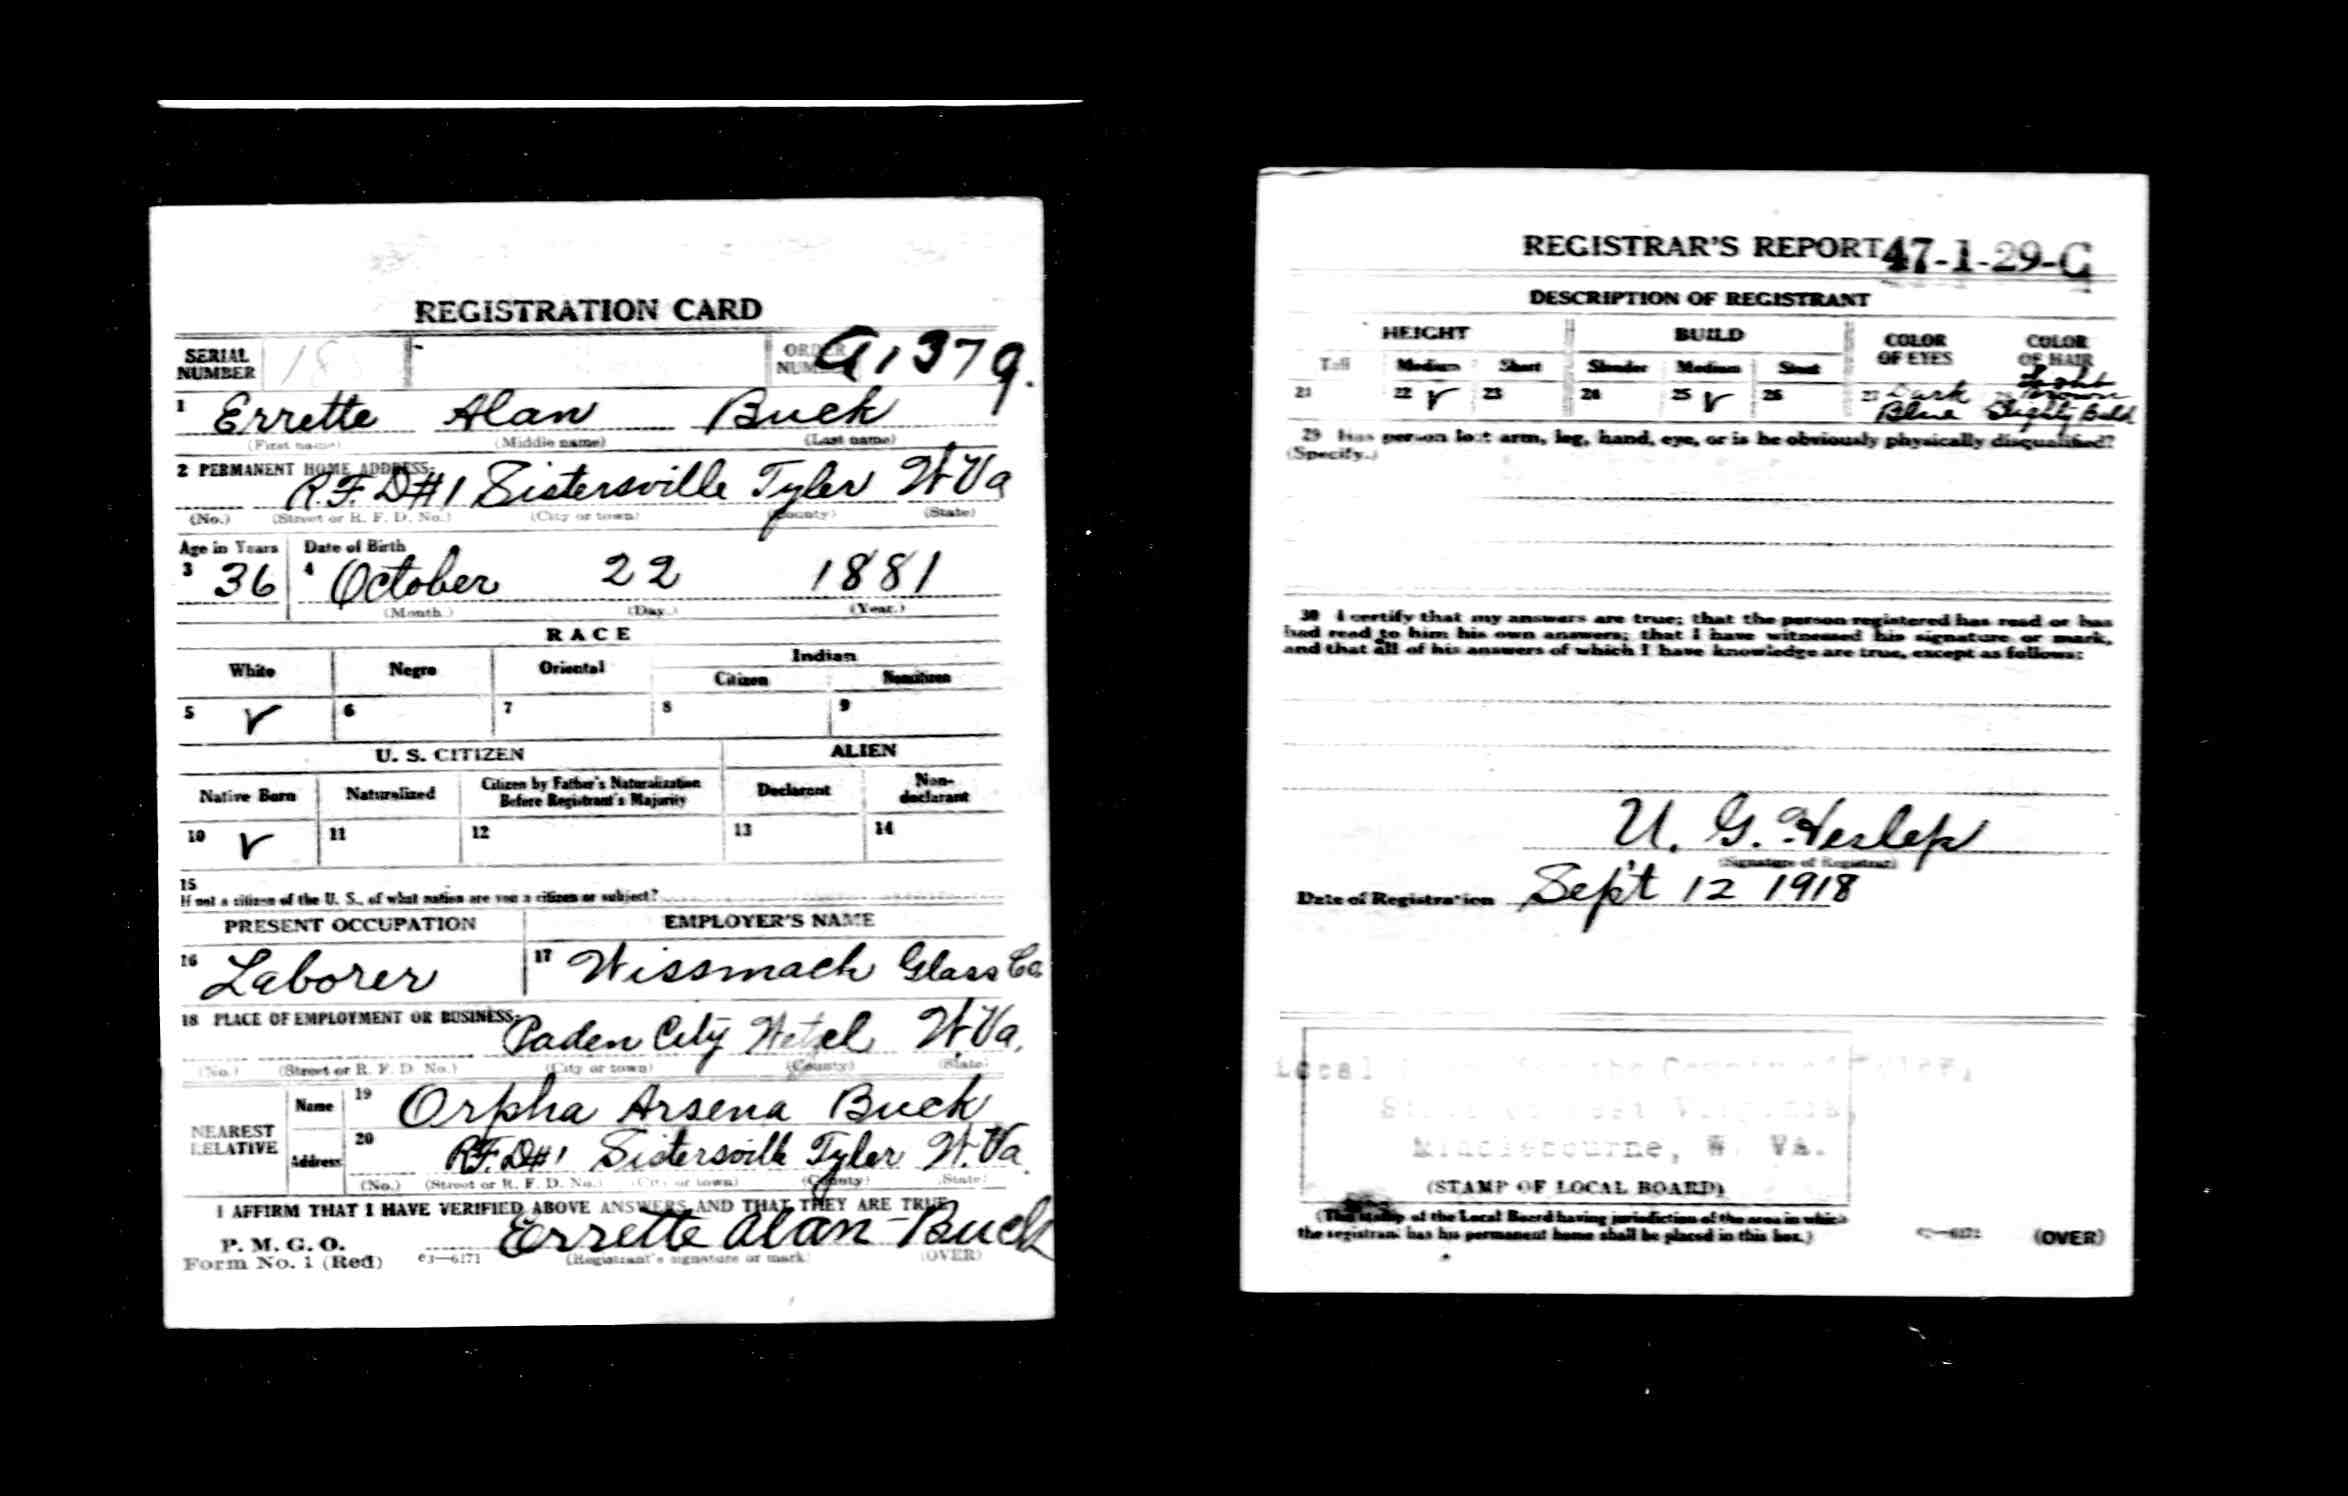 REGISTRATION CARD
SERIAL NUMBER
ORDER NUMBER A1379.
1 Errette Alan Buck
(First name) (Middle name) (Last name)
2 PERMANENT HOME ADDRESS:
R.F.D#1 Sistersville Tyler W Va
(No.) (Street or R. F. D. No.) (City or town) (County) (State)
Age in Years Date of Birth
3 36 4 October 22 1881
(Month.) (Day.) (Year.)
RACE
White Negro Oriental Indian
Citizen Noncitizen
5 ✓ 6 7 8 9
U. S. CITIZEN ALIEN
Native Born Naturalized Citizen by Father's Naturalization Before Registrant's Majority Declarant Non-declarant
10 ✓ 11 12 13 14
15
If not a citizen of the U. S., of what nation are you a citizen or subject?
PRESENT OCCUPATION EMPLOYER'S NAME
16 Laborer 17 Wissmach Glass Co
18 PLACE OF EMPLOYMENT OR BUSINESS:
Paden City Wetzel W.Va.
(No.) (Street or R. F. D. No.) (City or town) (County) (State)
NEAREST RELATIVE
Name 19 Orpha Arsena Buck
Address 20 R.F.D#1 Sistersville Tyler W.Va.
(No.) (Street or R. F. D. No.) (City or town) (County) (State)
I AFFIRM THAT I HAVE VERIFIED ABOVE ANSWERS AND THAT THEY ARE TRUE
P. M. G. O.
Form No. 1 (Red) 03—6171 Errette Alan Buck
(Registrant's signature or mark) (OVER)
REGISTRAR'S REPORT 47-1-29-C
DESCRIPTION OF REGISTRANT
HEIGHT BUILD COLOR OF EYES COLOR OF HAIR
Tall Medium Short Slender Medium Stout
21 22 ✓ 23 24 25 ✓ 26 27 Dark Blue Light Brown Slightly Bald
29 Has person lost arm, leg, hand, eye, or is he obviously physically disqualified?
(Specify.)
30 I certify that my answers are true; that the person registered has read or has
had read to him his own answers; that I have witnessed his signature or mark,
and that all of his answers of which I have knowledge are true, except as follows:
U. G. Heslep
(Signature of Registrar)
Date of Registration Sep't 12 1918
Local for the County of Tyler,
State of West Virginia,
Middlebourne, W. VA.
(STAMP OF LOCAL BOARD)
(The stamp of the Local Board having jurisdiction of the area in which
the registrant has his permanent home shall be placed in this box.)
03—6171 (OVER)